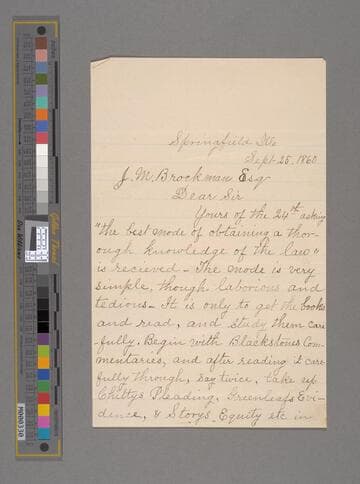 Springfield Ills
Sept 25, 1860
J. M. Brockman Esq
Dear Sir
Yours of the 24th asking
"the best mode of obtaining a thor-
ough knowledge of the law"
is recieved - The mode is very
simple, though laborious and
tedious - It is only to get the books
and read, and study them care
-fully. Begin with Blackstones Com-
mentaries, and after reading it care
fully through, say twice, take up
Chittys Pleading, Greenleafs Evi-
dence, & Storys Equity etc in
M000330